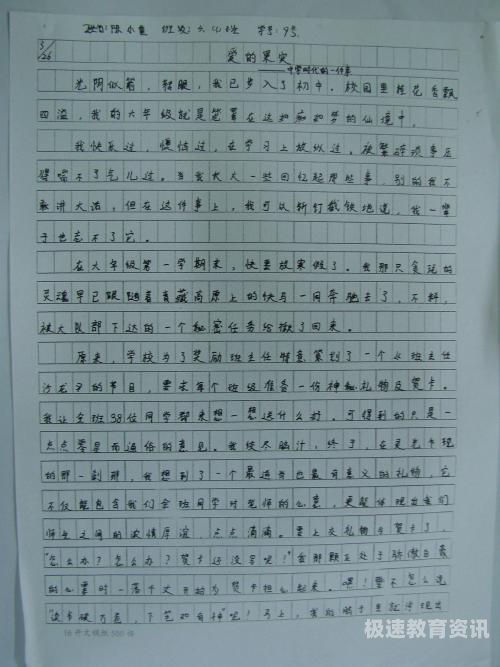 姓名:陈小 班级:六(4)班 学号:9号
3/26
爱的果实
——中学时代的一件事
光阴似箭,转眼,我已步入了初中,校园里桂花香飘
四溢,我的六年级就是笼罩在这如痴如梦的仙境中。
我快乐过,懊恼过,在学习上放纵过,被繁碎琐事压
得喘不了气儿过。当我长大一些回忆起那些事,别的我不
敢讲大话,但在这件事上,我可以斩钉截铁地说,我一辈
子也忘不了它。
在六年级第一学期末,快要放寒假了。我那只贪玩的
灵魂早已跟随着青藏高原上的快马一同奔驰去了,不料,
被大队部下达的一个秘密任务给揪了回来。
原来,学校为了奖励班主任特意策划了一个以班主任
沙龙 的节目,要求每个班级准备一份神秘礼物及贺卡。
我让全班38位同学都来想一想送什么好。可得到的只是一
点点零星而通俗的意见。我绞尽脑汁,终于,在灵光乍现
的那一刹那,我想到了一个最适当也最有意义的礼物,它
不仅能包含我们全班同学对老师的心意,更能体现出我们
师生之间的浓情厚谊,点点滴滴。要上交礼物与贺卡了,
“怎么办?怎么办?贺卡还没写呢!”我那颗正处于骄傲自豪
的心霎时一落千丈开始为贺卡担心起来。嘿!要不怎么说
“读书破万卷,下笔如有神”呢!马上,我的脑子里就浮现出
16开文稿纸500格
极速教育资讯